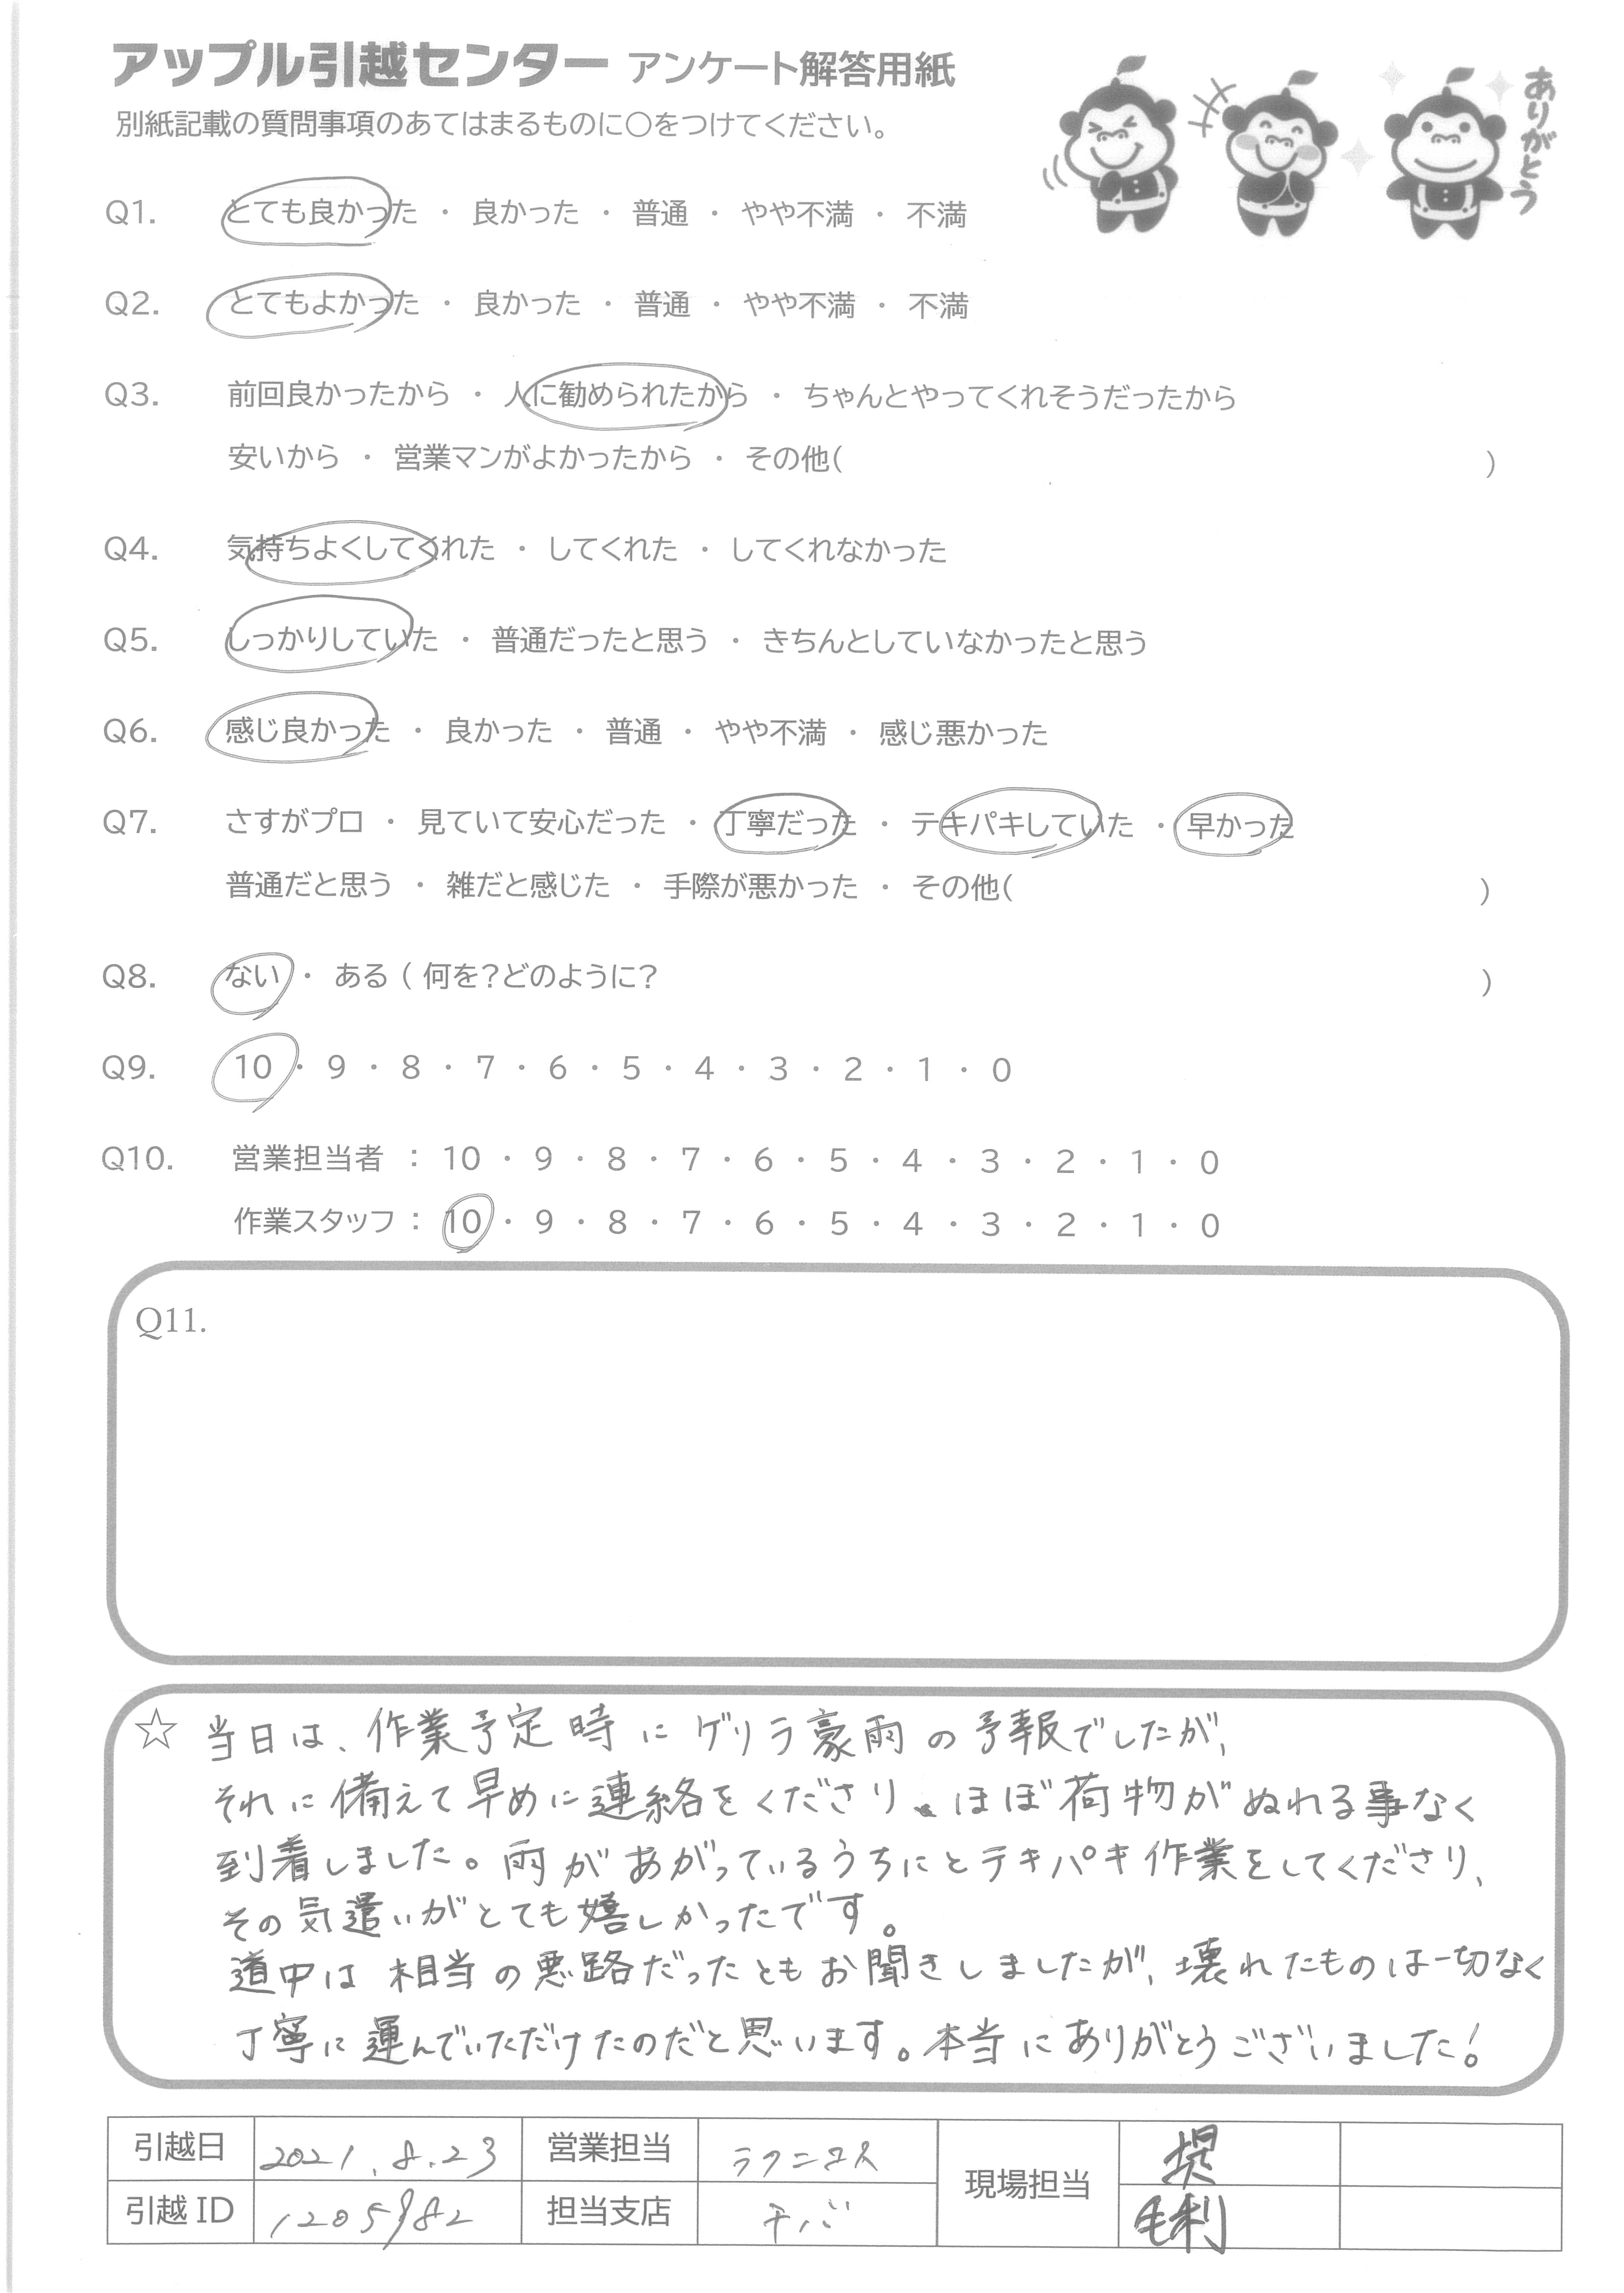 アップル引越センター アンケート解答用紙
別紙記載の質問事項のあてはまるものに○をつけてください。
ありがとう
Q1. とても良かった ・ 良かった ・ 普通 ・ やや不満 ・ 不満
Q2. とてもよかった ・ 良かった ・ 普通 ・ やや不満 ・ 不満
Q3. 前回良かったから ・ 人に勧められたから ・ ちゃんとやってくれそうだったから
安いから ・ 営業マンがよかったから ・ その他( )
Q4. 気持ちよくしてくれた ・ してくれた ・ してくれなかった
Q5. しっかりしていた ・ 普通だったと思う ・ きちんとしていなかったと思う
Q6. 感じ良かった ・ 良かった ・ 普通 ・ やや不満 ・ 感じ悪かった
Q7. さすがプロ ・ 見ていて安心だった ・ 丁寧だった ・ テキパキしていた ・ 早かった
普通だと思う ・ 雑だと感じた ・ 手際が悪かった ・ その他( )
Q8. ない ・ ある ( 何を?どのように? )
Q9. 10 ・ 9 ・ 8 ・ 7 ・ 6 ・ 5 ・ 4 ・ 3 ・ 2 ・ 1 ・ 0
Q10. 営業担当者 : 10 ・ 9 ・ 8 ・ 7 ・ 6 ・ 5 ・ 4 ・ 3 ・ 2 ・ 1 ・ 0
作業スタッフ : 10 ・ 9 ・ 8 ・ 7 ・ 6 ・ 5 ・ 4 ・ 3 ・ 2 ・ 1 ・ 0
Q11.
☆ 当日は、作業予定時にゲリラ豪雨の予報でしたが、
それに備えて早めに連絡をくださり、ほぼ荷物がぬれる事なく
到着しました。雨があがっているうちにとテキパキ作業をしてくださり、
その気遣いがとても嬉しかったです。
道中は相当の悪路だったともお聞きしましたが、壊れたものは一切なく
丁寧に運んでいただけたのだと思います。本当にありがとうございました!
引越日 2021.8.23 営業担当 ラクニコス 現場担当 堤
引越 ID 1205982 担当支店 チバ 毛利